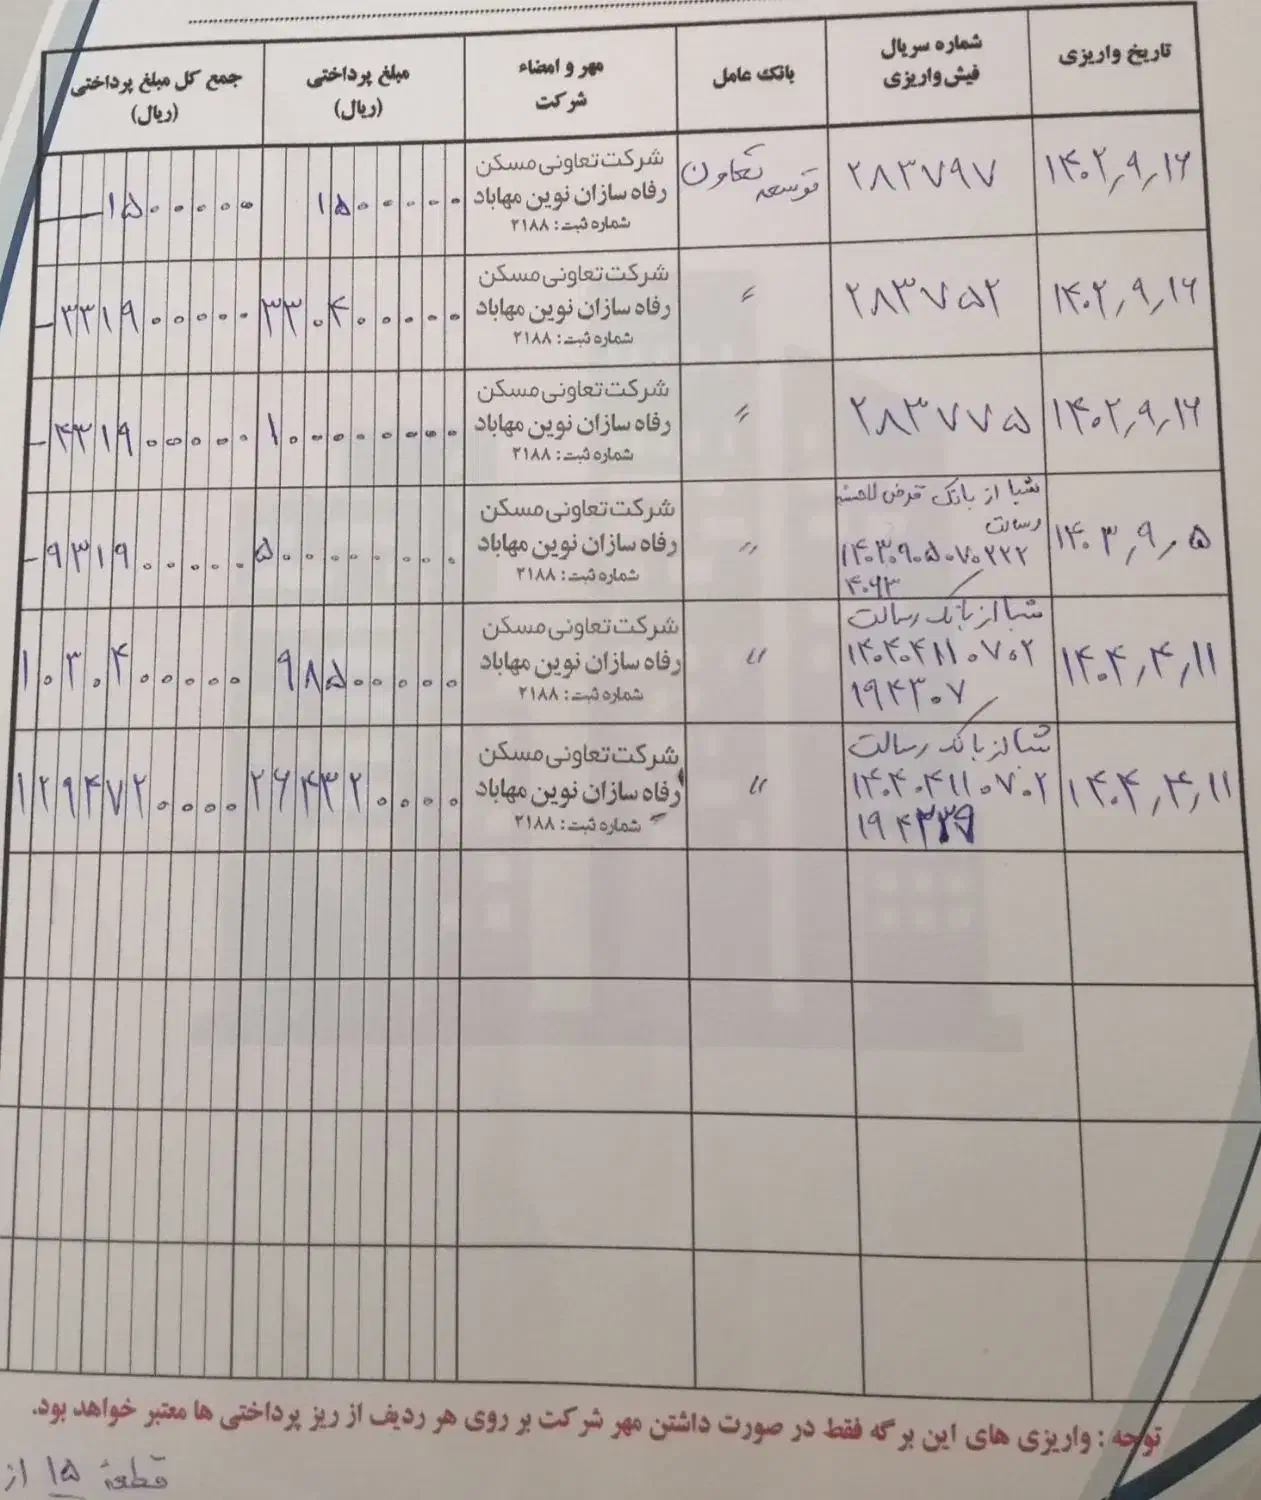 تاریخ واریزی
شماره سریال
فیش واریزی
بانک عامل
مهر و امضاء
شرکت
مبلغ پرداختی
(ریال)
جمع کل مبلغ پرداختی
(ریال)
۱۴۰۲٫۹٫۱۶
۲۸۳۷۹۷
توسعه تعاون
شرکت تعاونی مسکن
رفاه سازان نوین مهاباد
شماره ثبت: ۲۱۸۸
۱۵۰۰۰۰۰
۱۵۰۰۰۰۰
۱۴۰۲٫۹٫۱۶
۲۸۳۷۵۲
〃
شرکت تعاونی مسکن
رفاه سازان نوین مهاباد
شماره ثبت: ۲۱۸۸
۳۳۰۴۰۰۰۰۰
۳۳۱۹۰۰۰۰۰
۱۴۰۲٫۹٫۱۶
۲۸۳۷۷۵
〃
شرکت تعاونی مسکن
رفاه سازان نوین مهاباد
شماره ثبت: ۲۱۸۸
۱۰۰۰۰۰۰۰۰
۴۳۱۹۰۰۰۰۰
۱۴۰۳٫۹٫۵
شبا از بانک قرض الحسنه
رسالت
۱۴۰۳۰۹۰۵۰۷۰۲۲۲
۴۰۶۳
〃
شرکت تعاونی مسکن
رفاه سازان نوین مهاباد
شماره ثبت: ۲۱۸۸
۵۰۰۰۰۰۰۰۰
۹۳۱۹۰۰۰۰۰
۱۴۰۴٫۴٫۱۱
شبا از بانک رسالت
۱۴۰۴۰۴۱۱۰۷۰۲
۱۹۴۳۰۷
〃
شرکت تعاونی مسکن
رفاه سازان نوین مهاباد
شماره ثبت: ۲۱۸۸
۹۸۵۰۰۰۰۰
۱۰۳۰۴۰۰۰۰۰
۱۴۰۴٫۴٫۱۱
شبا از بانک رسالت
۱۴۰۴۰۴۱۱۰۷۰۲
〃
شرکت تعاونی مسکن
رفاه سازان نوین مهاباد
شماره ثبت: ۲۱۸۸
۲۶۴۳۲۰۰۰۰
۱۲۹۴۷۲۰۰۰۰
توجه : واریزی های این برگه فقط در صورت داشتن مهر شرکت بر روی هر ردیف از ریز پرداختی ها معتبر خواهد بود.
قطعهٔ ۱۵ از